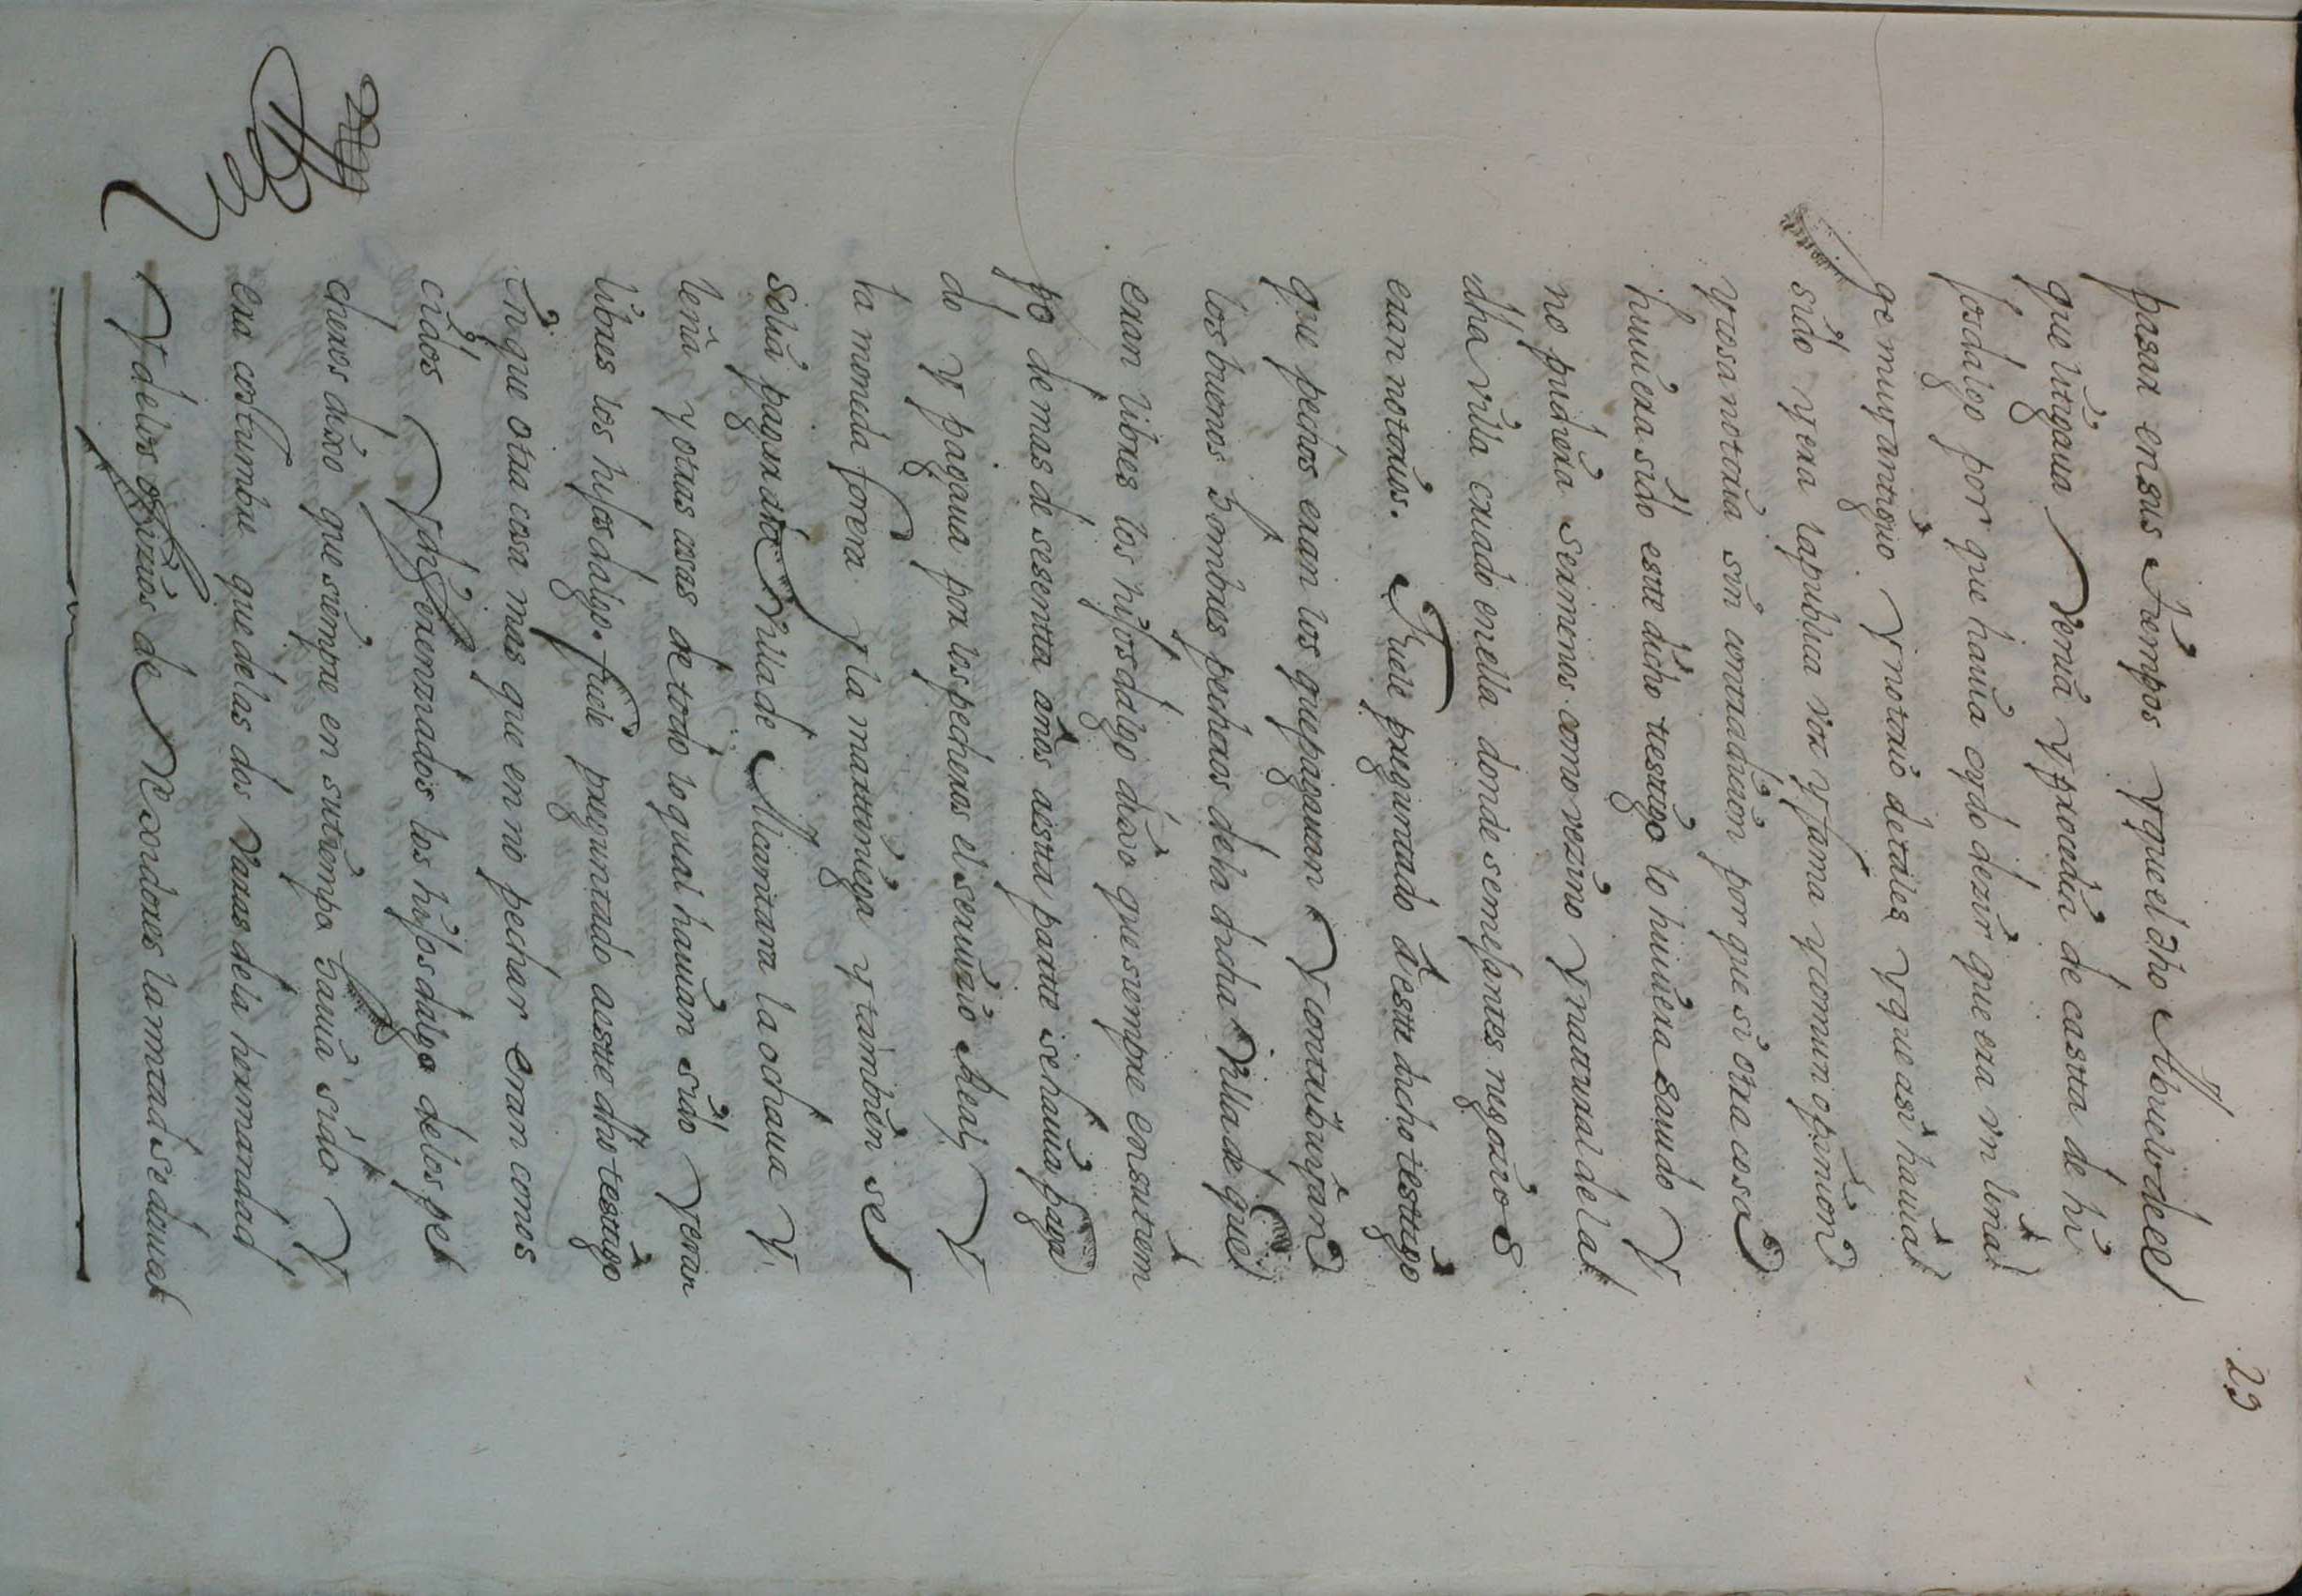 23
pasar en sus tiempos y que el dho Abuelo del
que litigaua Venia y proçedia de casta de hi
josdalgo por que hauia oydo dezir que era vn lina
ge muy antiguo y notorio de tales y que asi hauia
sido y era la publica voz y fama y comun opinion
y cosa notoria sin contradicion por que si otra cosa
huuiera sido este dicho testigo lo huuiera sauido y
no pudiera ser menos como vezino y natural de la
dha villa criado en ella donde semejantes negoçios
eran notorios. Fuele preguntado a este dicho testigo
que pechos eran los que pagauan y contribuyan
los buenos hombres pecheros de la dicha Villa de que
eran libres los hijosdalgo dixo que siempre en su tiem
po de mas de sesenta años a esta parte se hauia paga
do y pagaua por los pecheros el seruiçio Real y
la moneda forera y la martiniega y tambien se
solia pagar a la Villa de Alcantara la ochaua y
leña y otras cosas de todo lo qual hauian sido y eran
libres los hijosdalgo. fuele preguntado a este dho testigo
En que otra cosa mas que en no pechar eran cono
çidos y diferenziados los hijosdalgo de los pe
cheros dixo que siempre en su tiempo hauia sido y
era costumbre que de las dos Varas de la hermandad
Y de los ofiçios de Rexidores la mitad se daua